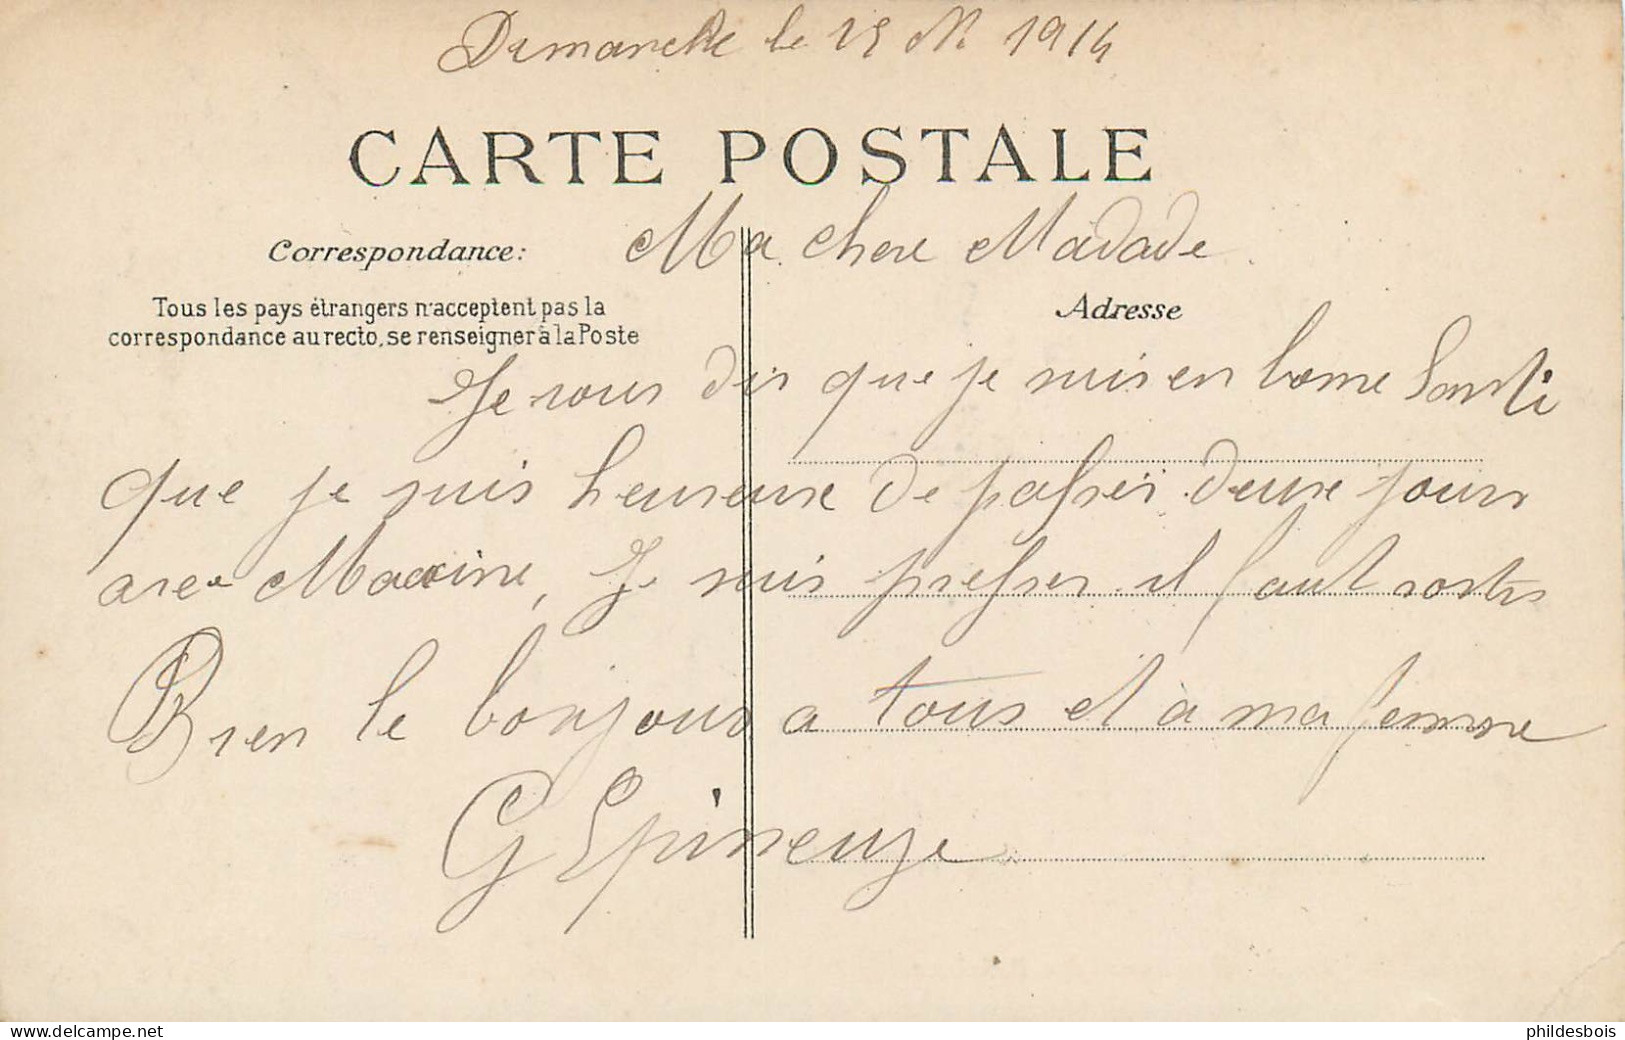 Dimanche le 15 M. 1914
CARTE POSTALE
Ma chere Madade
Correspondance:
Tous les pays étrangers n'acceptent pas la
correspondance au recto, se renseigner à la Poste
Adresse
Je vous dis que je suis en bonne Santi
que je suis heureuse de passer deuse jours
avec Maxine, Je suis presser il faut
Bien le bonjour a tous et à ma femme
G Epineuze
delcampe.net
phildesbois